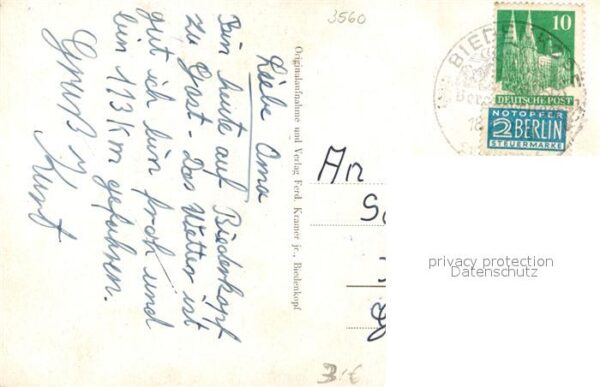 Liebe Oma
Bin heute auf Biedenkopf
zu Gast - Das Wetter ist
gut ich bin froh und
bin 113 km gefahren.
Gruß
Kurt
Originalaufnahme und Verlag Ferd. Kramer jr., Biedenkopf
3560
An
10
DEUTSCHE POST
NOTOPFER
2 BERLIN
STEUERMARKE
BIEDEN
privacy protection
Datenschutz